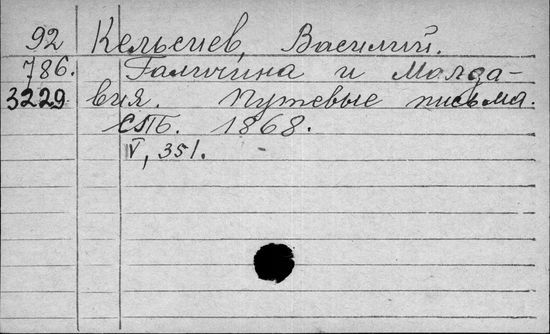 92 Кельсиев, Василий.
786. Галичина и Молда-
3229 вия. Путевые письма.
СПБ. 1868.
V, 351.